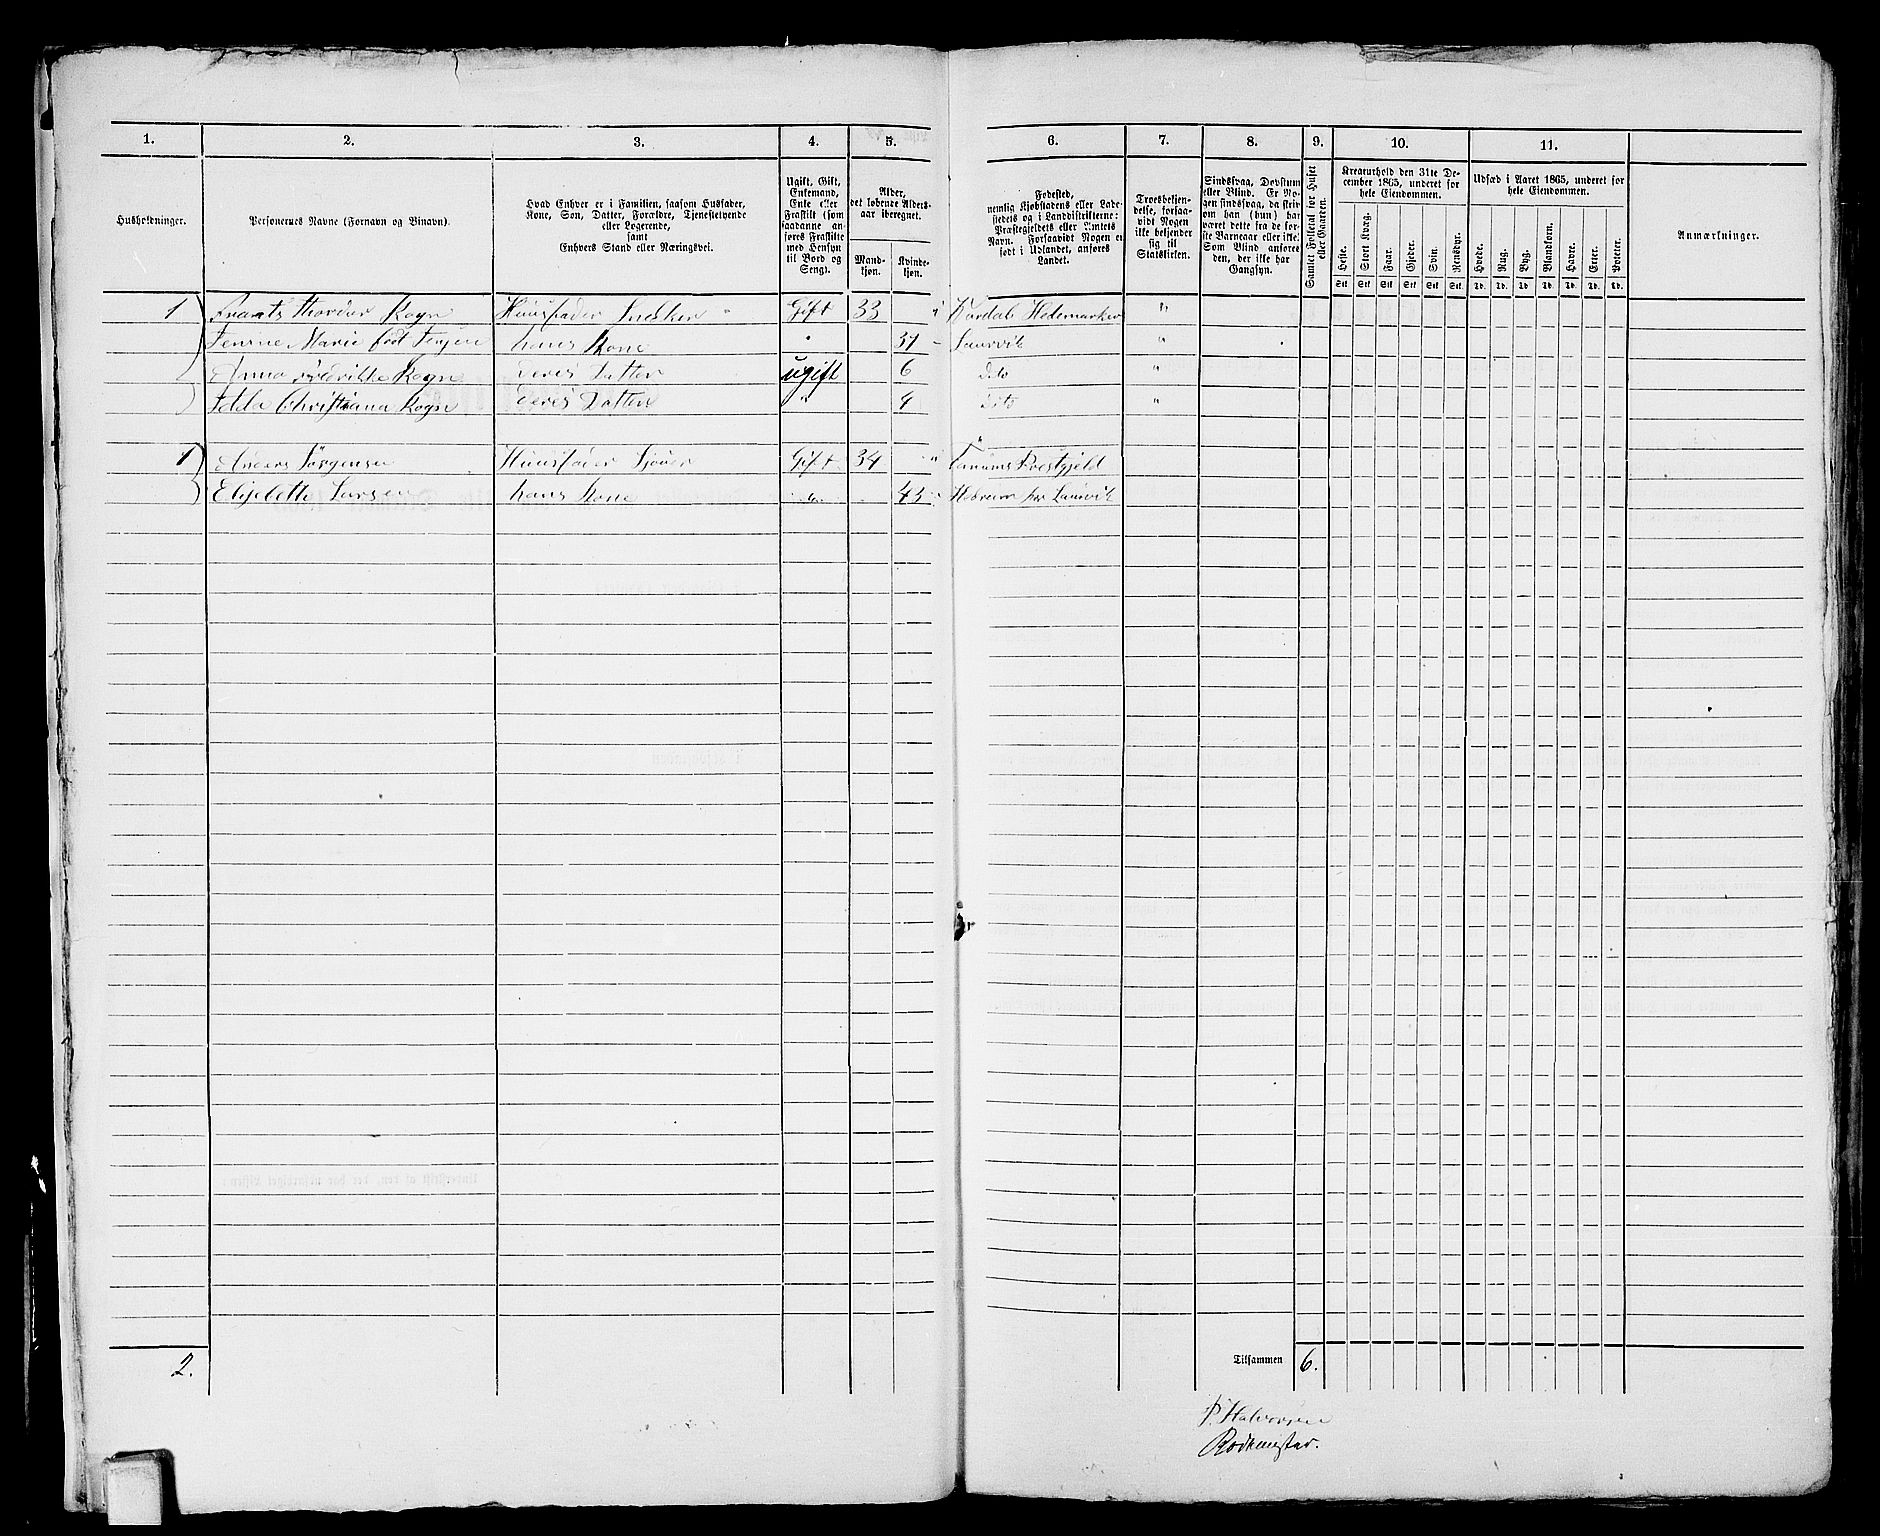 1. 2. 3. 4. 5. 6. 7. 8. 9. 10. 11.
Husholdninger.
Personernes Navne (Fornavn og Binavn).
Hvad Enhver er i Familien, saasom Husfader,
Kone, Søn, Datter, Forældre, Tjenestetyende
eller Logerende,
samt
Enhvers Stand eller Næringsvei.
Ugift, Gift,
Enkemand,
Enke eller
Fraskilt (som
saadanne an-
føres Fraskilte
med Hensyn
til Bord og
Seng).
Alder,
det løbende Alders-
aar iberegnet.
Mand-
kjøn.
Kvinde-
kjøn.
Fødested,
nemlig Kjøbstadens eller Lade-
stedets og i Landdistrikterne:
Præstegjeldets eller Amtets
Navn. Forsaavidt Nogen er
født i Udlandet, anføres
Landet.
Troesbekjen-
delse, forsaa-
vidt Nogen
ikke bekjender
sig til
Statskirken.
Sindssvag, Døvstum
eller Blind. Er No-
gen sindssvag, da skriv
om han (hun) har
været dette fra de før-
ste Barneaar eller ikke.
Som Blind anføres
den, der ikke har
Gangsyn.
Samlet Folketal for Huset
eller Gaarden.
Kreaturhold den 31te De-
cember 1865, underet for
hele Eiendommen.
Heste. Stort Kvæg. Faar. Gjeder. Svin. Rensdyr.
Stk. Stk. Stk. Stk. Stk. Stk.
Udsæd i Aaret 1865, underet for
hele Eiendommen.
Hvede. Rug. Byg. Blandkorn. Havre. Erter. Poteter.
Td. Td. Td. Td. Td. Td. Td.
Anmærkninger.
1 Kogn Huusfader Snedker " Gift 33 " Hedemarken "
Marie født hans Kone " 31 Laurvik "
Anna Kogn Deres Datter ugift 6 dito "
Christiana Kogn Deres Datter " 4 dito "
1 Anders Jørgensen Huusfader Gift 34 " Præstgjeld
Larsen hans Kone " 43 Laurvik
2.
Tilsammen 6.
P. Halvorsen
Rodemester.